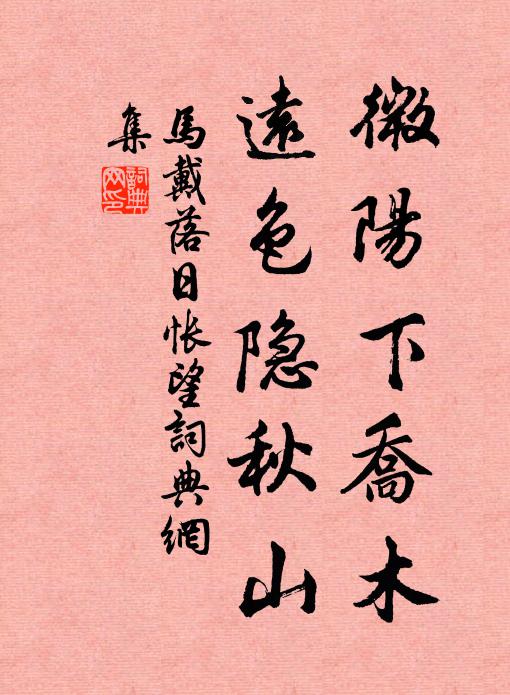 微陽下喬木
遠色隐秋山
馬戴落日怅望詞典網
集
詞典
网印